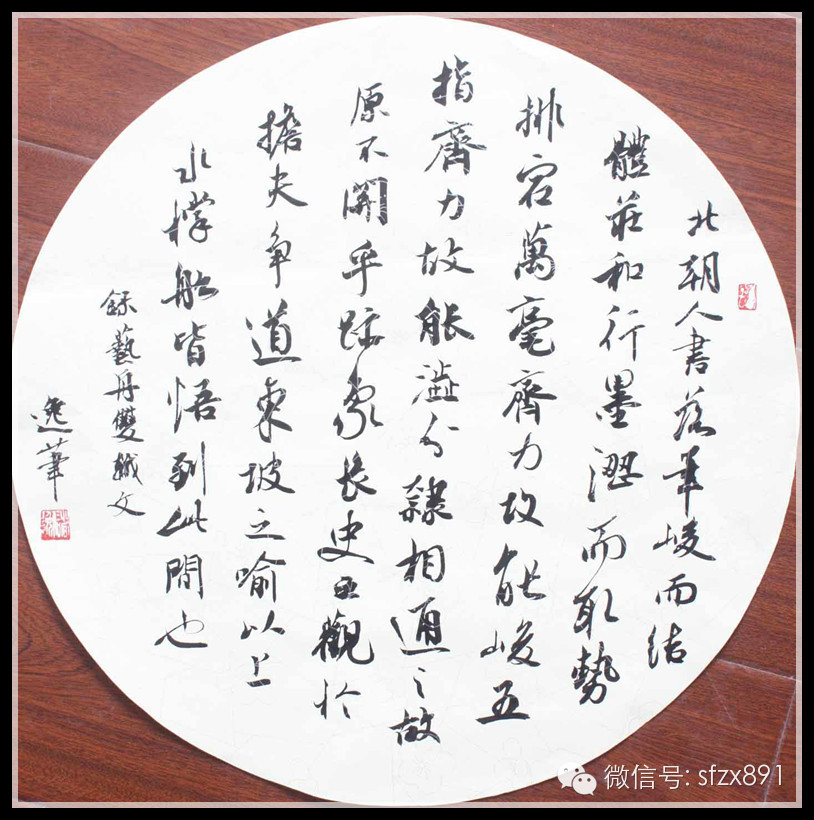 北朝人書落筆峻而結
體莊和行墨澀而取勢
排宕萬毫齊力故能峻五
指齊力故能澀分隸相通之故
原不關乎跡象長史觀於
擔夫争道東坡之喻以上
水撐船皆悟到此間也
錄藝舟雙楫文
逸筆
微信号: sfzx891